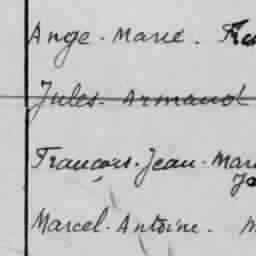 Ange - Marie.
Jules - Armand
François - Jean - Mar
Marcel - Antoine.